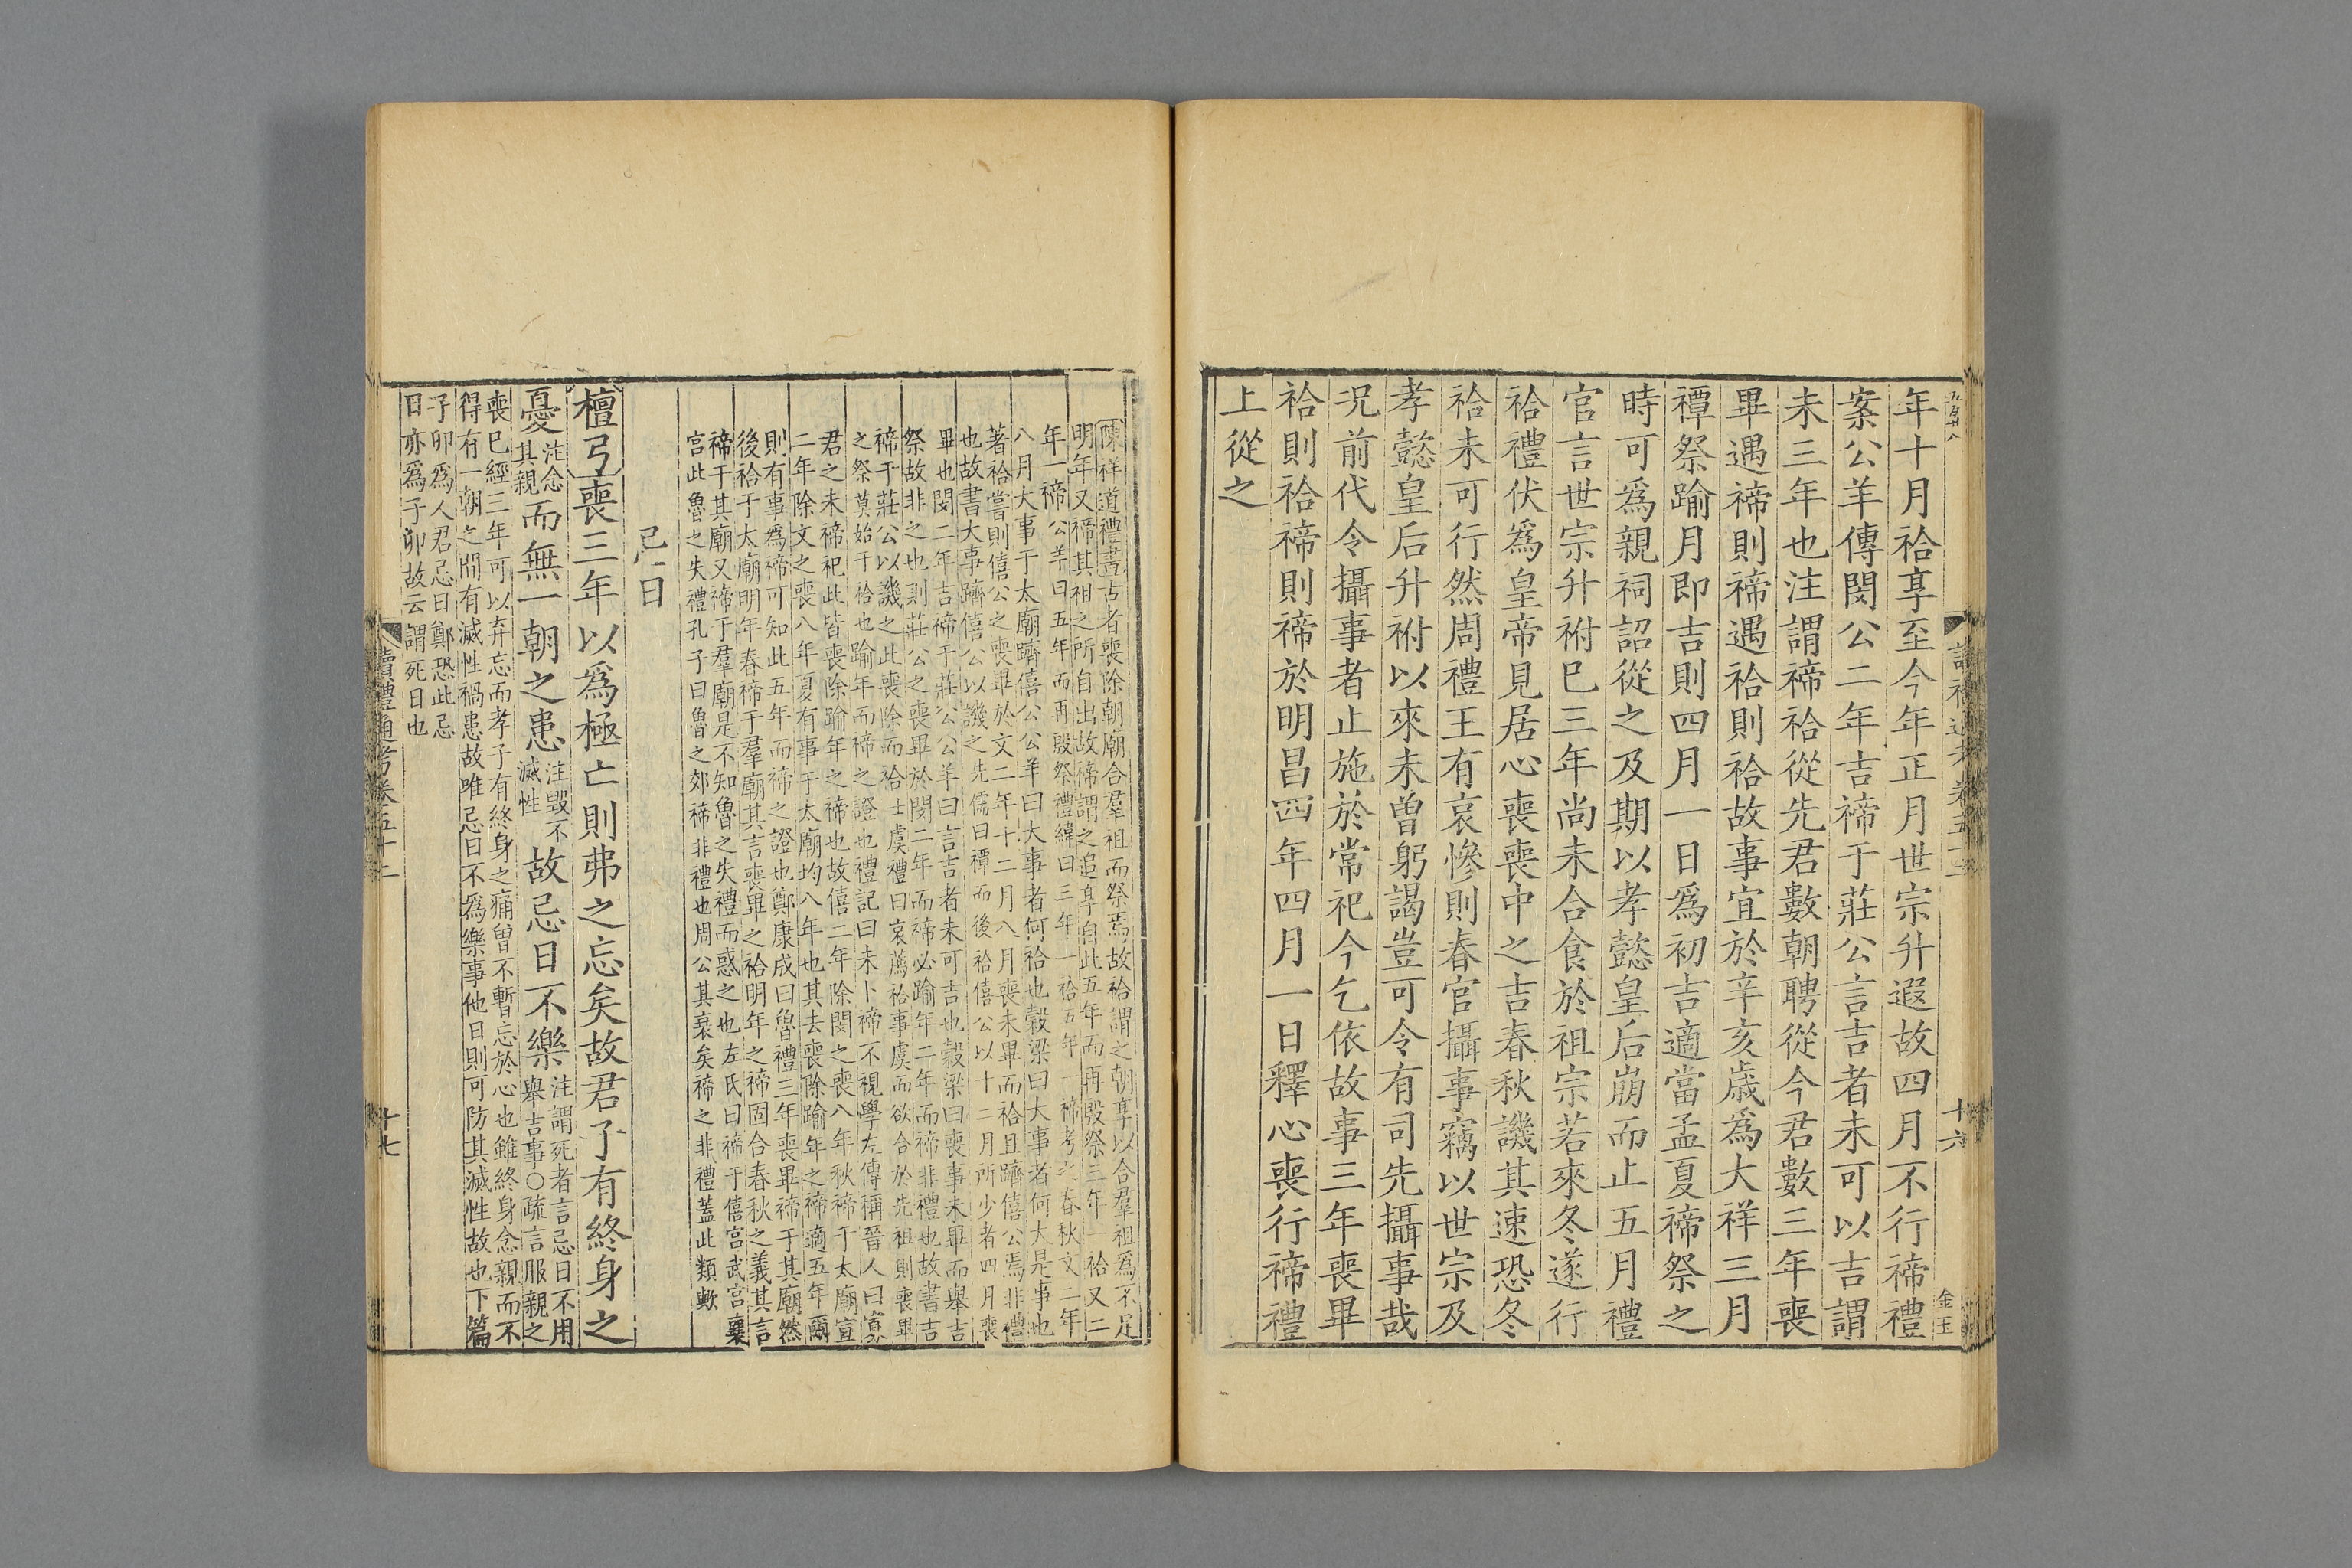 年十月祫享至今年正月世宗升遐故四月不行禘禮
案公羊傳閔公二年吉禘于莊公言吉者未可以吉謂
未三年也注謂禘祫從先君數朝聘從今君數三年喪
畢遇禘則禘遇祫則祫故事宜於辛亥歲爲大祥三月
禫祭踰月即吉則四月一日爲初吉適當孟夏禘祭之
時可爲親祠詔從之及期以孝懿皇后崩而止五月禮
官言世宗升祔巳三年尚未合食於祖宗若來冬遂行
祫禮伏爲皇帝見居心喪喪中之吉春秋譏其速恐冬
祫未可行然周禮王有哀慘則春官攝事竊以世宗及
孝懿皇后升祔以來未曾躬謁豈可令有司先攝事哉
况前代令攝事者止施於常祀今乞依故事三年喪畢
祫則祫禘則禘於明昌四年四月一日釋心喪行禘禮
上從之
十六
金玉
陳祥道禮書古者喪除朝廟合羣祖而祭焉故祫謂之朝享以合羣祖爲不足
明年又禘其祖之所自出故禘謂之追享自此五年而再殷祭三年一祫又二
年一禘公羊曰五年而再殷祭禮緯曰三年一祫五年一禘考之春秋文二年
八月大事于太廟躋僖公公羊曰大事者何祫也穀梁曰大事者何大是事也
著祫嘗則僖公之喪畢於文二年十二月八月喪未畢而祫且躋僖公焉非禮
也故書大事躋僖公以譏之先儒曰禫而後祫僖公以十二月所少者四月喪
畢也閔二年吉禘于莊公公羊曰言吉者未可吉也穀梁曰喪事未畢而舉吉
祭故非之也則莊公之喪畢於閔二年而禘必踰年二年而禘非禮也故書吉
禘于莊公以譏之此喪除而祫士虞禮曰哀薦祫事虞而欲合於先祖則喪畢
之祭莫始于祫也踰年而禘之證也禮記曰未卜禘不視學左傳稱晉人曰寡
君之未禘祀此皆喪除踰年之禘也故僖二年除閔之喪八年秋禘于太廟宣
二年除文之喪八年夏有事于太廟均八年也其去喪除踰年之禘適五年爾
則有事爲禘可知此五年而禘之證也鄭康成曰魯禮三年喪畢禘于其廟然
後祫于太廟明年春禘于羣廟其言喪畢之祫明年之禘固合春秋之義其言
禘于其廟又禘于羣廟是不知魯之失禮而惑之也左氏曰禘于僖宮武宮襄
宮此魯之失禮孔子曰魯之郊禘非禮也周公其衰矣禘之非禮蓋此類歟
忌日
檀弓喪三年以爲極亡則弗之忘矣故君子有終身之
憂注念其親而無一朝之患注毀不滅性故忌日不樂注謂死者言忌日不用舉吉事○疏言服親之
喪巳經三年可以弃忘而孝子有終身之痛曾不暫忘於心也雖終身念親而不
得有一朝之間有滅性禍患故唯忌日不爲樂事他日則可防其滅性故也下篇
子卯爲人君忌日鄭恐此忌
日亦爲子卯故云謂死日也
讀禮通考卷五十二
十七